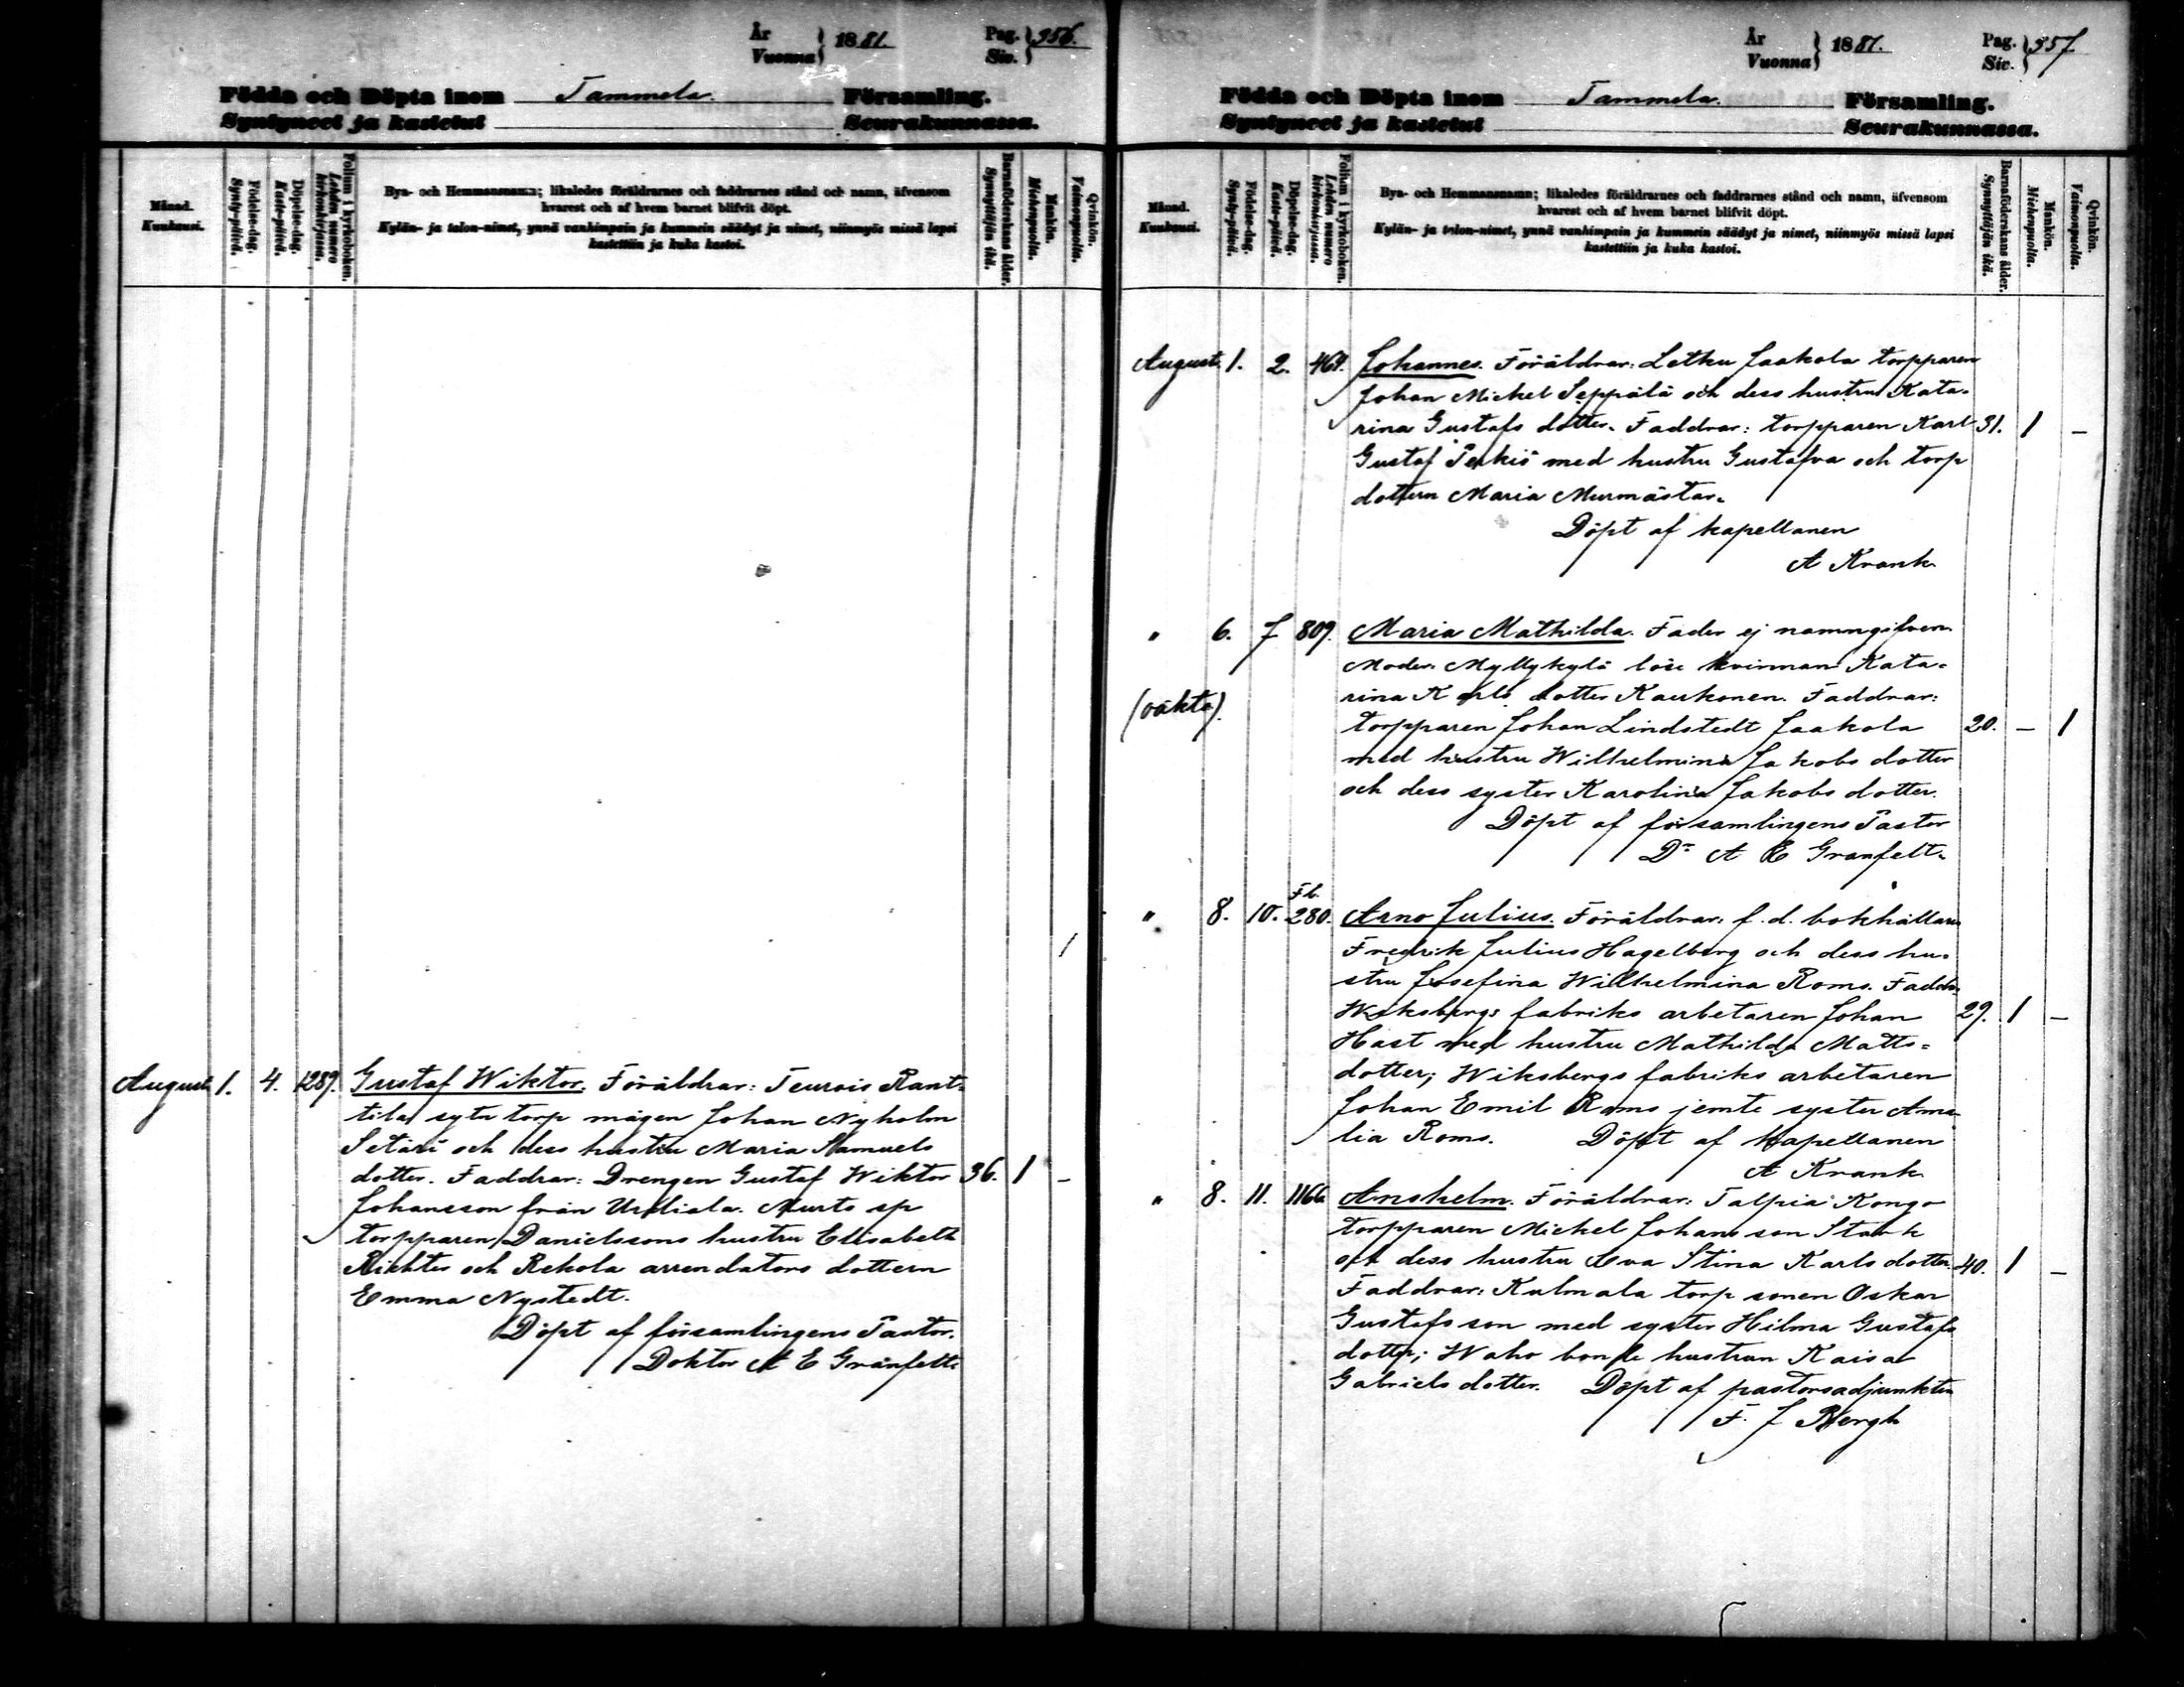 År
Vuonna } 1881.
Pag.
Siv. } 956.
Födda och Döpta inom Tammela. Församling.
Syntyneet ja kastetut Seurakunnassa.
Månad.
Kuukausi.
Födelse-dag.
Synty-päivä.
Döpelse-dag.
Kaste-päivä.
Folium i kyrkoboken.
Lehden numero
kirkonkirjassa.
Bya- och Hemmansnamn; likaledes föräldrarnes och faddrarnes stånd och namn, äfvensom
hvarest och af hvem barnet blifvit döpt.
Kylän- ja talon-nimet, ynnä vanhimpain ja kummein säädyt ja nimet, niinmyös missä lapsi
kastettiin ja kuka kastoi.
Barnaföderskans ålder.
Synnyttäjän ikä.
Mankön.
Miehenpuolta.
Qvinkön.
Vaimonpuolta.
August. 1. 4. 1289. Gustaf Wiktor. Föräldrar: Teurois Rant-
tila sytn torp mågen Johan Nyholm
Setäri och dess hustru Maria Samuels
dotter. Faddrar: Drengen Gustaf Wiktor 36. 1 –
Johansson från Urdiala. Murto sp
torpparen Danielssons hustru Elisabeth
Richter och Rekola arrendators dottern
Emma Nystedt.
Döpt af församlingens Pastor.
Doktor A E Granfelt.
År
Vuonna } 1881.
Pag.
Siv. } 957
Födda och Döpta inom Tammela. Församling.
Syntyneet ja kastetut Seurakunnassa.
Månad.
Kuukausi.
Födelse-dag.
Synty-päivä.
Döpelse-dag.
Kaste-päivä.
Folium i kyrkoboken.
Lehden numero
kirkonkirjassa.
Bya- och Hemmansnamn; likaledes föräldrarnes och faddrarnes stånd och namn, äfvensom
hvarest och af hvem barnet blifvit döpt.
Kylän- ja talon-nimet, ynnä vanhimpain ja kummein säädyt ja nimet, niinmyös missä lapsi
kastettiin ja kuka kastoi.
Barnaföderskans ålder.
Synnyttäjän ikä.
Mankön.
Miehenpuolta.
Qvinkön.
Vaimonpuolta.
August. 1. 2. 464. Johannes. Föräldrar: Letku Jaakola torpparen
Johan Mickel Seppälä och dess hustru Kata-
rina Gustafs dotter. Faddrar: torpparen Karl 31. 1 –
Gustaf Perkiö med hustru Gustafva och torp
dottern Maria Murmästar.
Döpt af kapellanen
A Krank.
" 6. 7 809. Maria Mathilda. Fader ej namngifven.
Moder: Myllykylä löse kvinnan Kata-
rina Karls dotter Kaukonen. Faddrar:
(oäkta).
torpparen Johan Lindstedt Jaakola 20. – 1
med hustru Wilhelmina Jakobs dotter
och dess syster Karolina Jakobs dotter.
Döpt af församlingens Pastor
Dr A E Granfelt.
Fb.
" 8. 10. 280. Arno Julius. Föräldrar: f.d. bokhållaren
Fredrik Julius Hagelberg och dess hu-
stru Josefina Wilhelmina Roms. Faddr:
Wiksbergs fabriks arbetaren Johan 29. 1 –
Hast med hustru Mathilda Matts-
dotter; Wiksbergs fabriks arbetaren
Johan Emil Roms jemte syster Ama-
lia Roms. Döpt af kapellanen
A Krank.
" 8. 11. 1166. Anshelm. Föräldrar: Talpia Kongo
torpparen Mickel Johansson Stark
och dess hustru Eva Stina Karls dotter. 40. 1 –
Faddrar: Kulmala torp sonen Oskar
Gustafs son med syster Hilma Gustafs
dotter; Waho bonde hustrun Kaisa
Gabriels dotter. Döpt af pastorsadjunkten
F. J Bergh